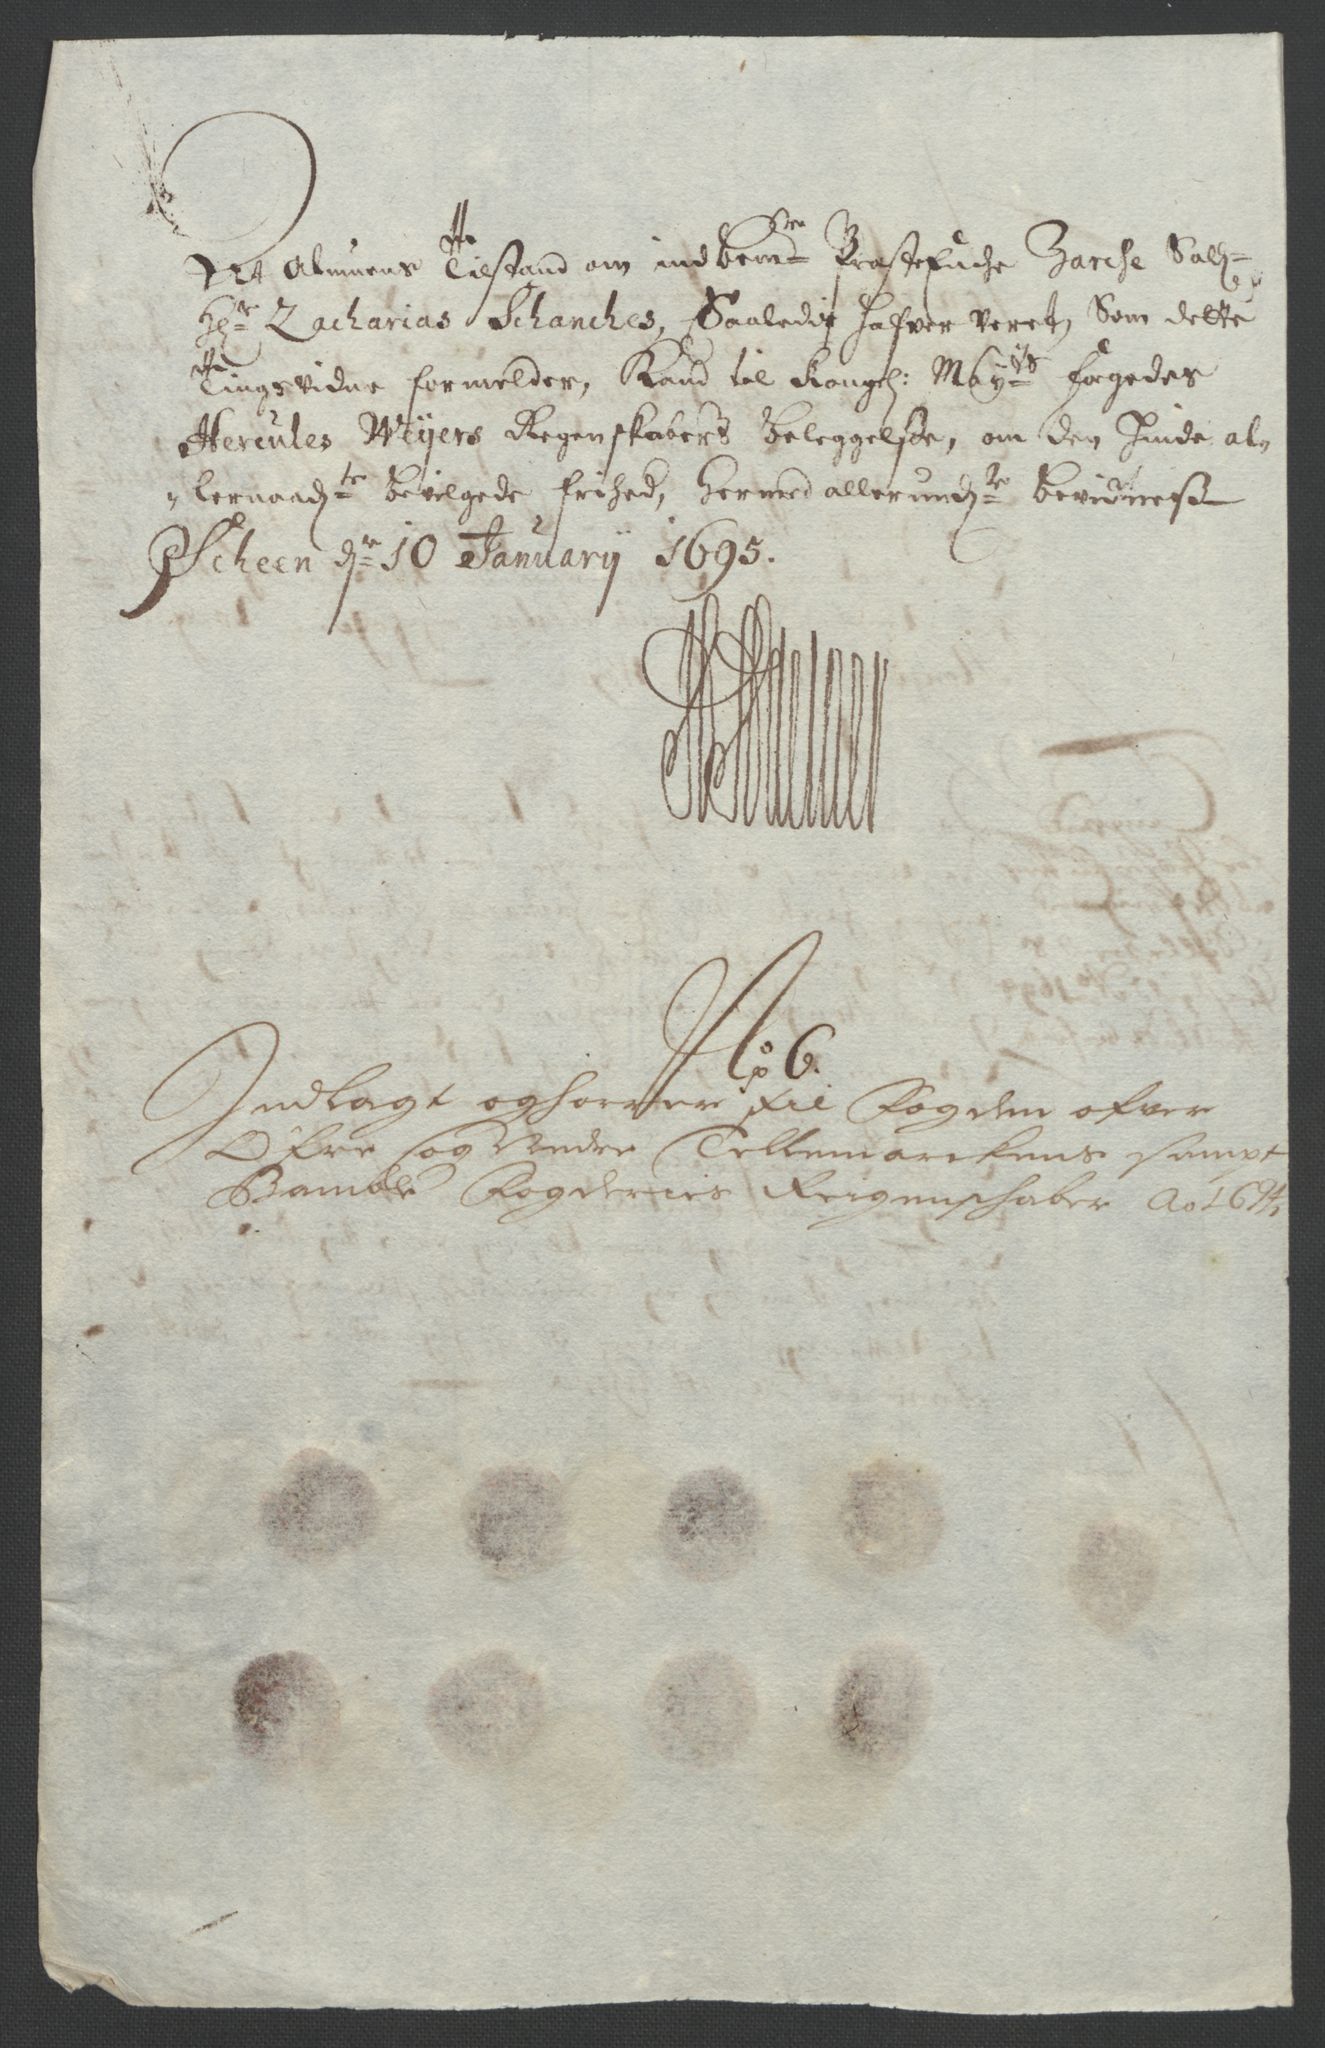 At Almuens Tilstand om indbem:te Præstefche Barche Sal:
Hr: Zacharias Schanches, Saaledis hafver veret, Som dette
Tingsvidne formelder, Kand til Kongel: May:ts fogedes
Hercules Weÿers Regenskabers Beleggelse, om den hinde al,
lernaad:te bevilgede frihed, hermed allerund:te bevidnes
Scheen d: 10 Januarÿ 1695.
No 6.
Indlagt og hörrer til Fogden ofver
Öfre og Nedre Tellemarckens sampt
Bamble Fogderies Reigenschaber Ao 1694,